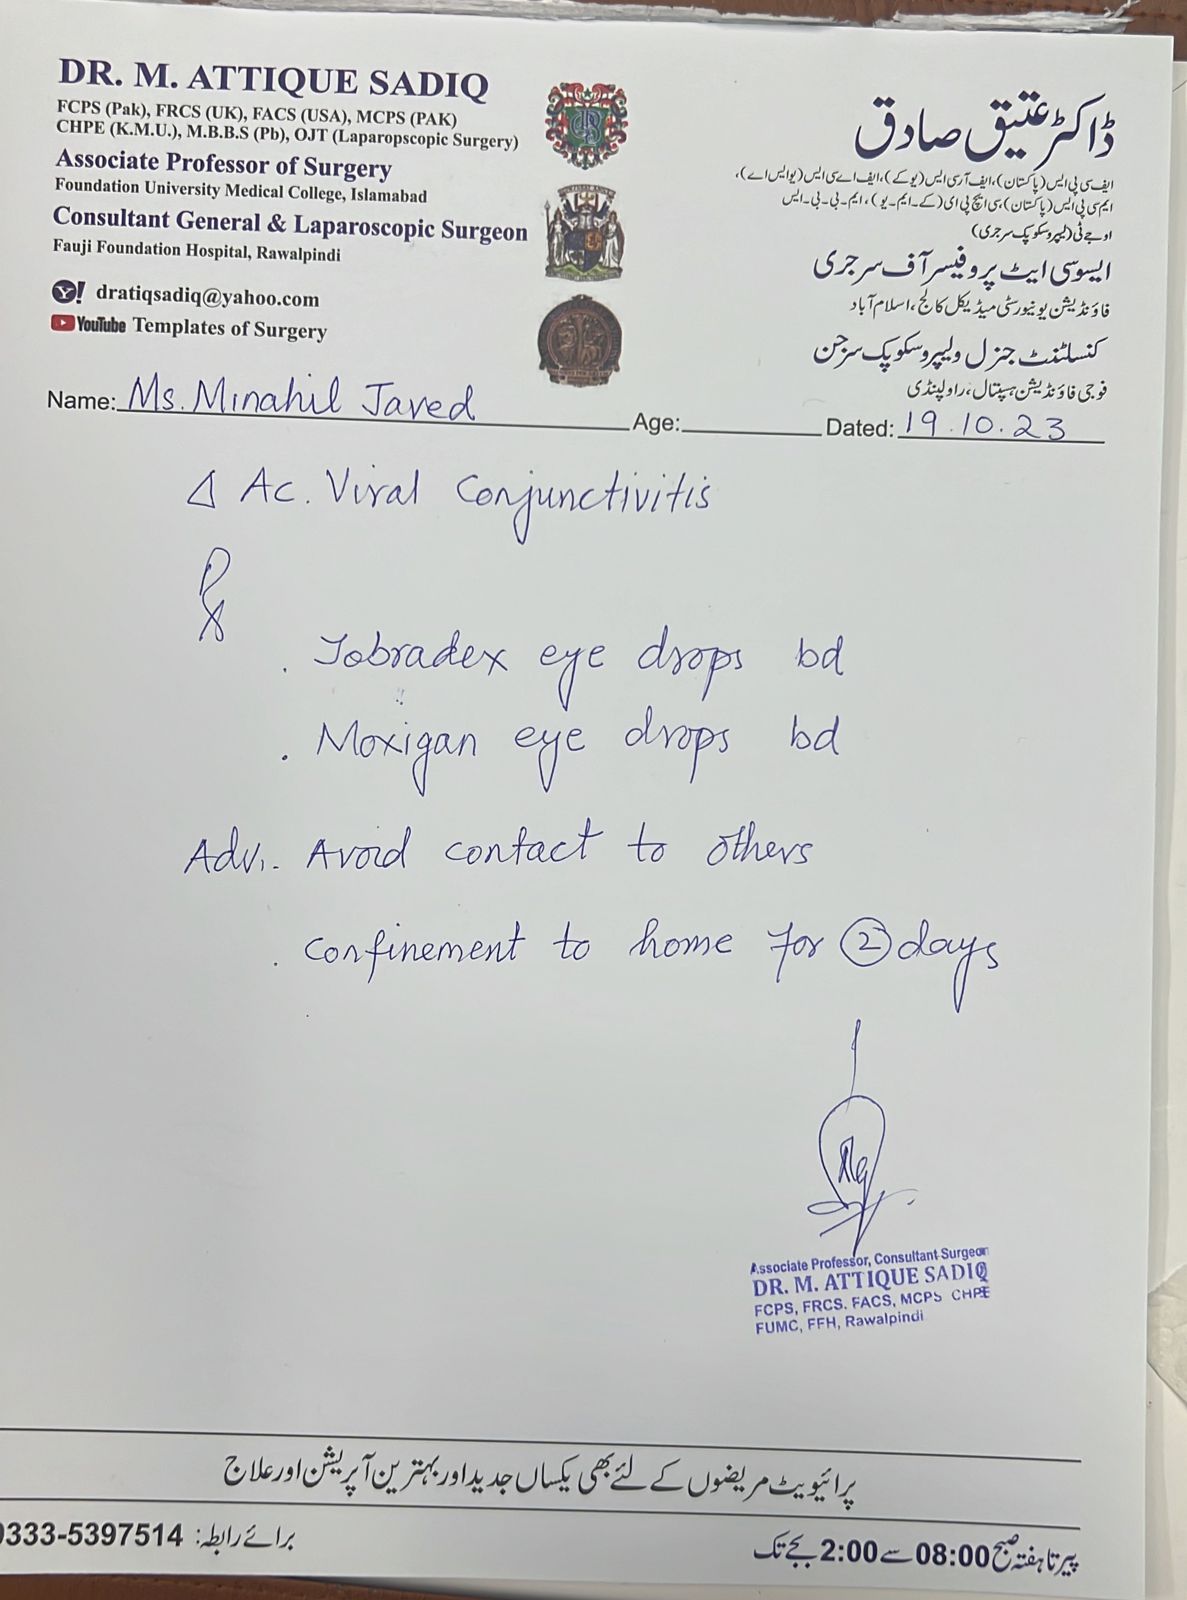 DR. M. ATTIQUE SADIQ
FCPS (Pak), FRCS (UK), FACS (USA), MCPS (PAK)
CHPE (K.M.U.), M.B.B.S (Pb), OJT (Laparopscopic Surgery)
Associate Professor of Surgery
Foundation University Medical College, Islamabad
Consultant General & Laparoscopic Surgeon
Fauji Foundation Hospital, Rawalpindi
dratiqsadiq@yahoo.com
YouTube Templates of Surgery
ڈاکٹر عتیق صادق
ایف سی پی ایس (پاکستان)، ایف آر سی ایس (یوکے)، ایف اے سی ایس (یو ایس اے)،
ایم سی پی ایس (پاکستان) سی ایچ پی ای (کے۔ایم۔یو)، ایم۔بی۔بی۔ایس
او جے ٹی (لیپروسکوپک سرجری)
ایسوسی ایٹ پروفیسر آف سرجری
فاؤنڈیشن یونیورسٹی میڈیکل کالج، اسلام آباد
کنسلٹنٹ جنرل ولیپروسکوپک سرجن
فوجی فاؤنڈیشن ہسپتال، راولپنڈی
Name: Ms. Minahil Javed Age: Dated: 19.10.23
Δ Ac. Viral Conjunctivitis
℞
. Tobradex eye drops bd
. Moxigan eye drops bd
Adv. Avoid contact to others
. confinement to home for 2 days
Associate Professor, Consultant Surgeon
DR. M. ATTIQUE SADIQ
FCPS, FRCS. FACS, MCPS CHPE
FUMC, FFH, Rawalpindi
پرائیویٹ مریضوں کے لئے بھی یکساں جدید اور بہترین آپریشن اور علاج
پیر تا ہفتہ صبح 08:00 سے 2:00 بجے تک
برائے رابطہ: 0333-5397514